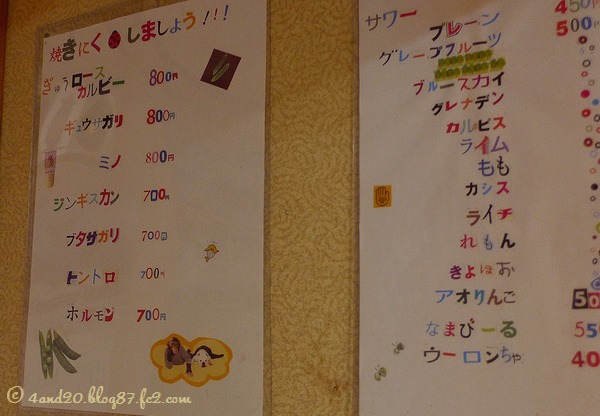 焼きにくしましょう!!!
ぎゅうロース
カルビー 800円
ギュウサガリ 800円
ミノ 800円
ジンギスカン 700円
ブタサガリ 700円
トントロ 700円
ホルモン 700円
サワー プレーン 450円
グレープフルーツ 500円
ブルースカイ
グレナデン
カルピス
ライム
もも
カシス
ライチ
れもん
きよほお
アオりんご 50
なまびーる 55
ウーロンちゃ 40
© 4and20.blog87.fc2.com